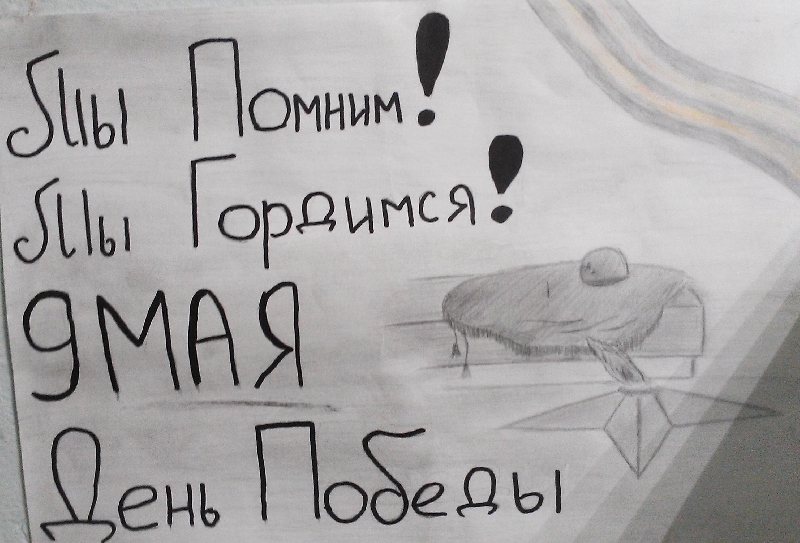 Мы Помним!
Мы Гордимся!
9 МАЯ
День Победы